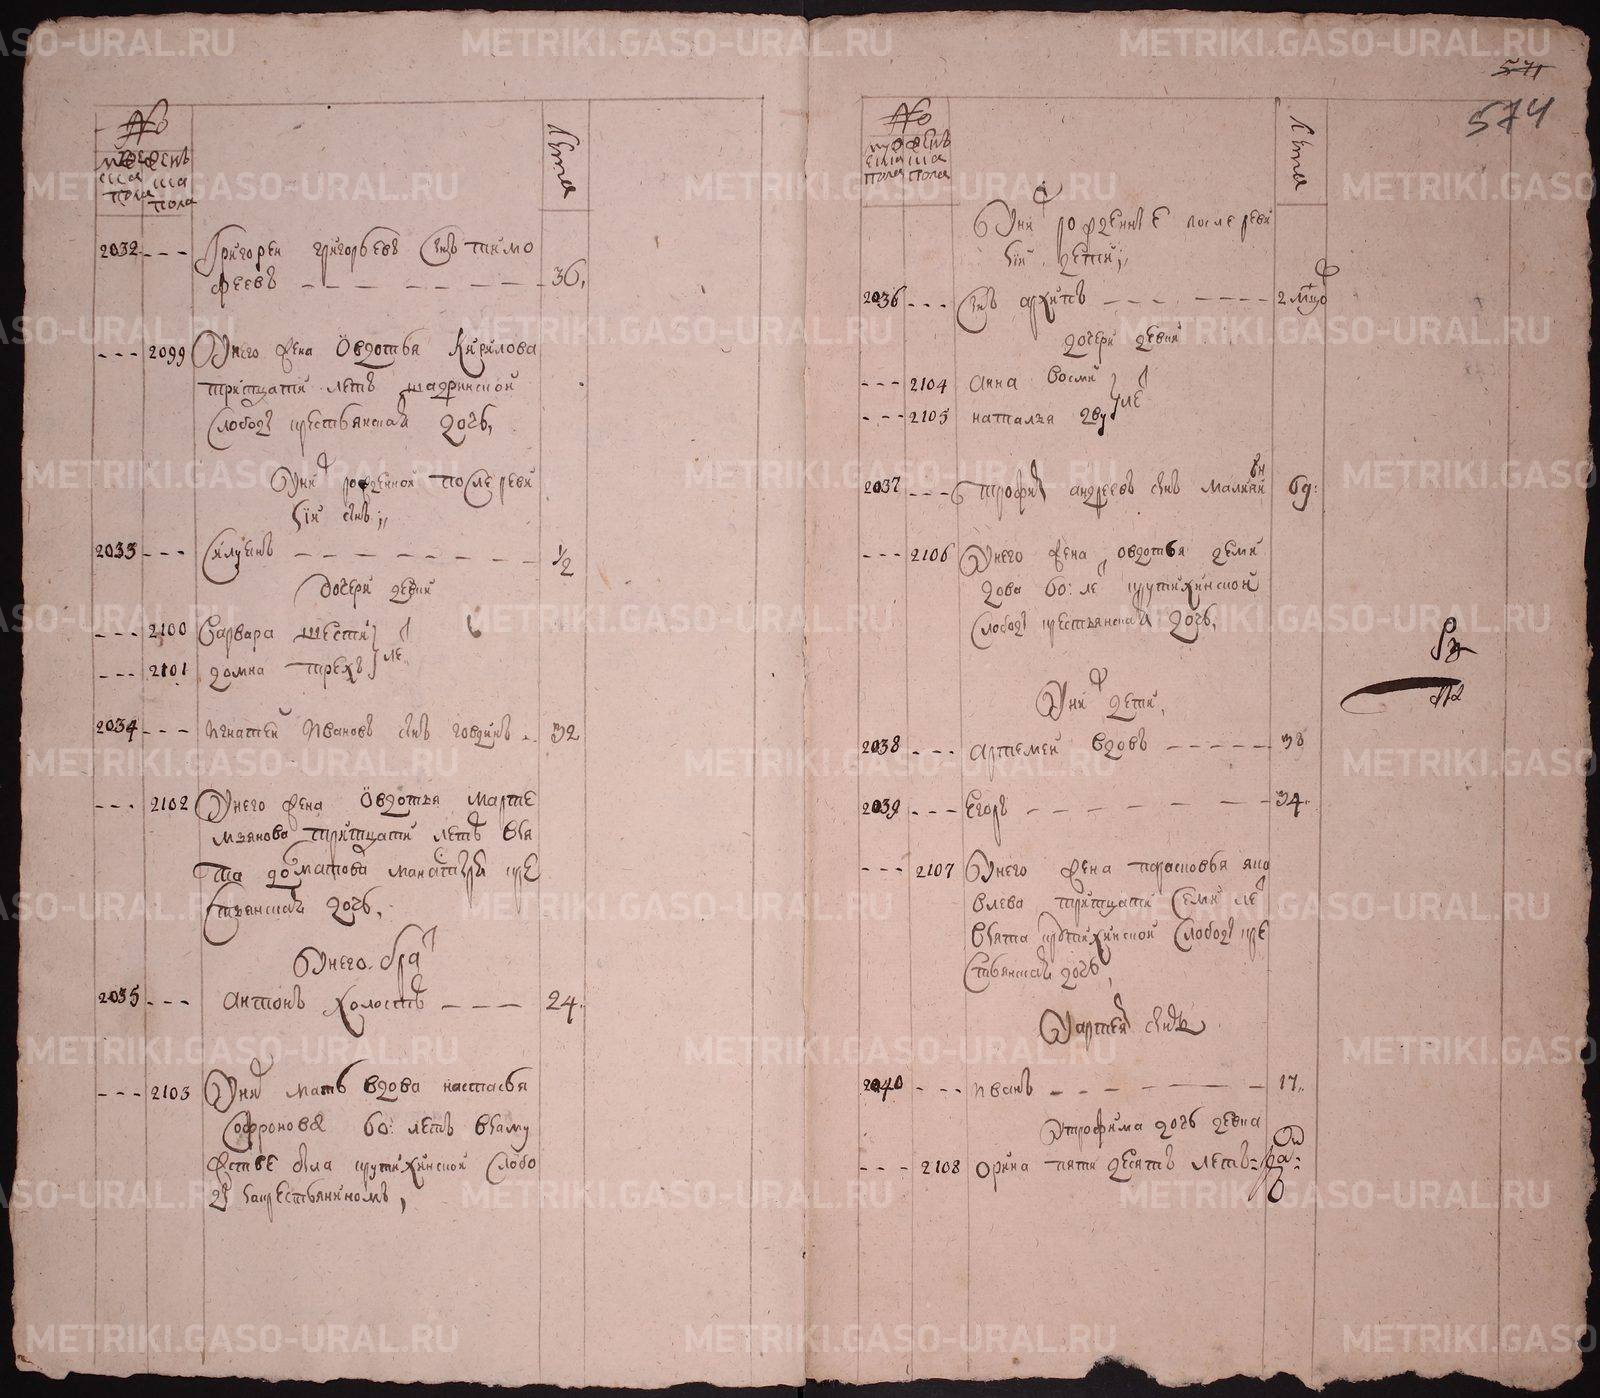 №
мужеска пола
женска пола
лета
2032 - - - Григорей григорьевъ снъ тимо
феевъ - - - - - - - 36.
- - - 2099 Унего жена Овдотья Кирилова
тритцати летъ шадринской
Слободы крестьянская дочь,
Уних рожденной после реви
зiи снъ;
2033 - - - - - - - - - - 1/2
дочери девки
- - - 2100 Варвара шести
- - - 2101 домна трехъ ле
2034 - - - Игнатей Ивановъ снъ - - 32
- - - 2102 Унего жена Овдотья Марте
мьянова тритцати летъ взя
та далматова манастыря кре
стьянская дочь,
Унего брат
2035 - - - антонъ холостъ - - - 24.
- - - 2103 Уних мать вдова настасья
Софронова 60: летъ взаму
жстве была крутихинской слобо
ды закрестьяниномъ,
571
574
№
мужеска пола
женска пола
лета
Уних рожденные после реви
зiи дети;
2036 - - - Снъ архипъ - - - - - - - 2 мцоd
дочери девки
- - - 2104 анна восми
- - - 2105 наталья двух ле
2037 - - - трофим андреевъ снъ 69:
- - - 2106 Унего жена овдотья деми
дова 60: ле крутихинской
слободы крестьянская дочь,
Уних дети,
2038 - - - артемей вдовъ - - - - - 38
2039 - - - Егоръ - - - - - - 34.
- - - 2107 Унего жена парасковья яко
влева тритцати семи ле
взята крутихинской слободы кре
стьянская дочь,
Уартемья снъ
2040 - - - Иванъ - - - - - - 17.
Утрофима дочь девка
- - - 2108 орина пяти десятъ летъ
METRIKI.GASO-URAL.RU